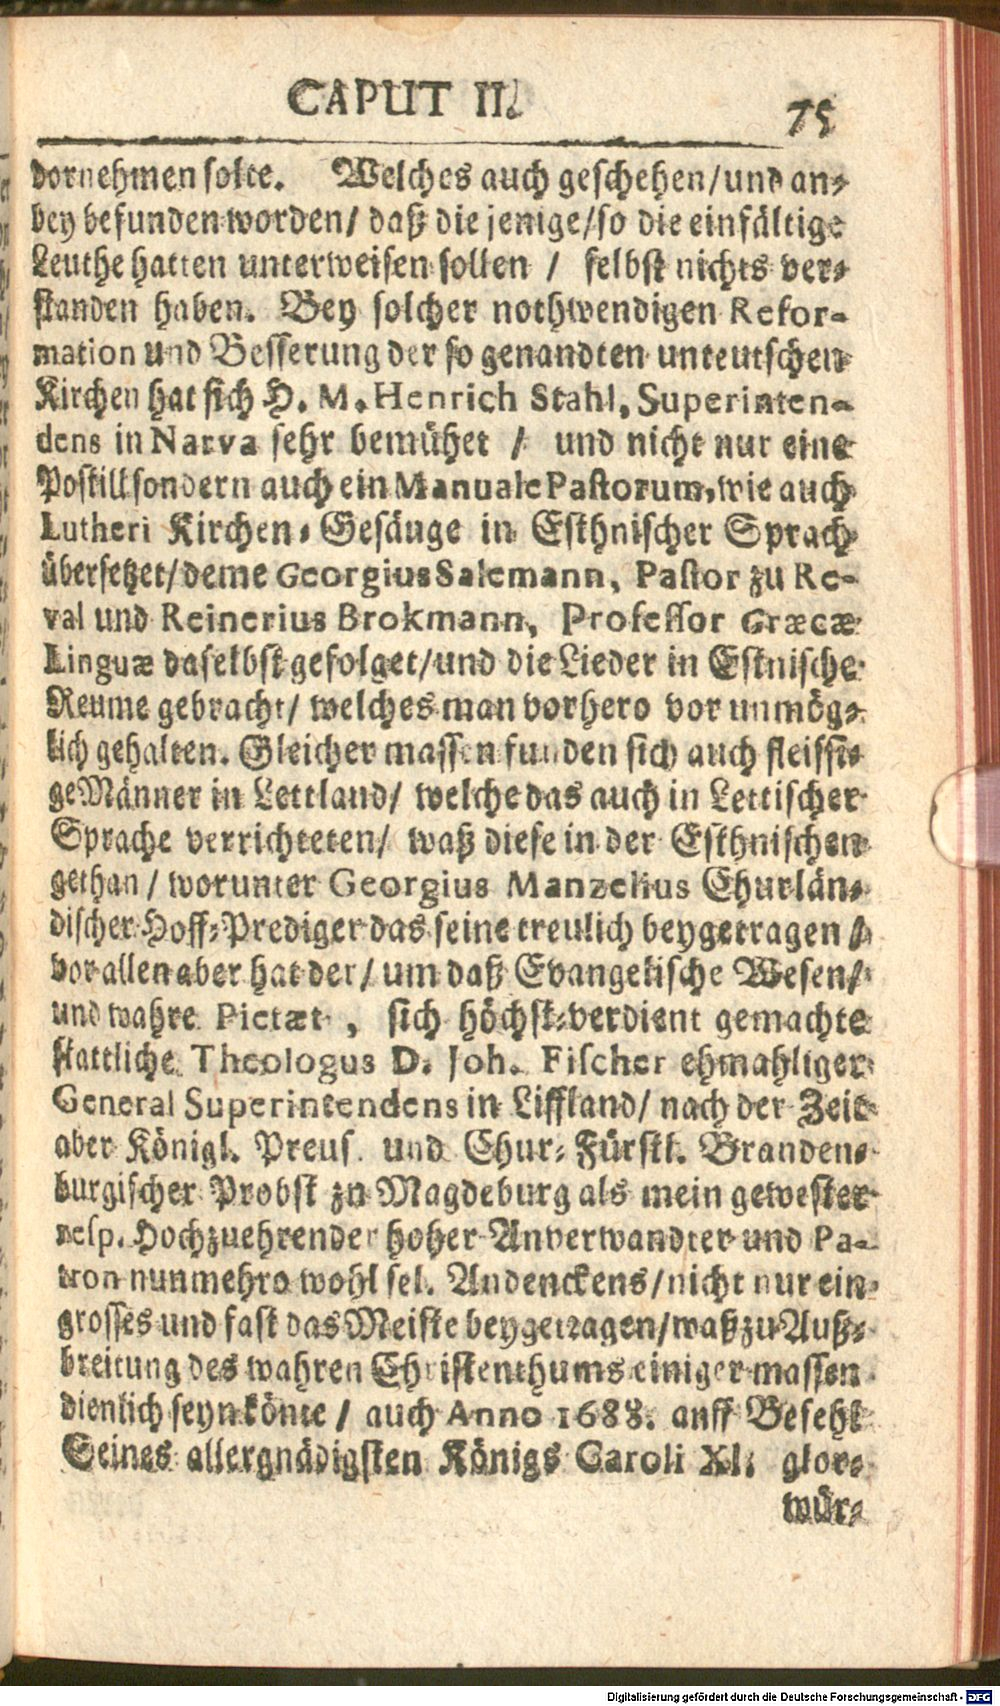 CAPUT II.
75
vornehmen solte. Welches auch geschehen/und an-
bey befunden worden/ daß die jenige/so die einfältige
Leuthe hatten unterweisen sollen / selbst nichts ver-
standen haben. Bey solcher nothwendigen Refor-
mation und Besserung der so genandten unteutschen
Kirchen hat sich H. M. Henrich Stahl, Superinten-
dens in Narva sehr bemühet / und nicht nur eine
Postill sondern auch ein Manuale Pastorum, wie auch
Lutheri Kirchen-Gesäuge in Esthnischer Sprach
übersetzet/deme Georgius Salemann, Pastor zu Re-
val und Reinerius Brokmann, Professor Græcæ
Linguæ daselbst gefolget/und die Lieder in Estnische
Reume gebracht/ welches man vorhero vor unmög-
lich gehalten. Gleicher massen funden sich auch fleissi-
ge Männer in Lettland/ welche das auch in Lettischer
Sprache verrichteten/ waß diese in der Esthnischen
gethan / worunter Georgius Manzelius Churlän-
discher Hoff-Prediger das seine treulich beygetragen /
vor allen aber hat der/ um daß Evangelische Wesen/
und wahre Pietæt, sich höchst-verdient gemachte
stattliche Theologus D. Joh. Fischer ehmahliger
General Superintendens in Liffland/ nach der Zeit
aber Königl. Preus. und Chur-Fürstl. Branden-
burgischer Probst zu Magdeburg als mein gewester
resp. Hochzuehrender hoher Anverwandter und Pa-
tron nunmehro wohl sel. Andenckens/nicht nur ein
grosses und fast das Meiste beygetragen/waß zu Auß-
breitung des wahren Christenthums einiger massen
dienlich seyn könte / auch Anno 1688. auff Befehl
Seines allergnädigsten Königs Caroli XI. glor-
wür-
Digitalisierung gefördert durch die Deutsche Forschungsgemeinschaft - DFG